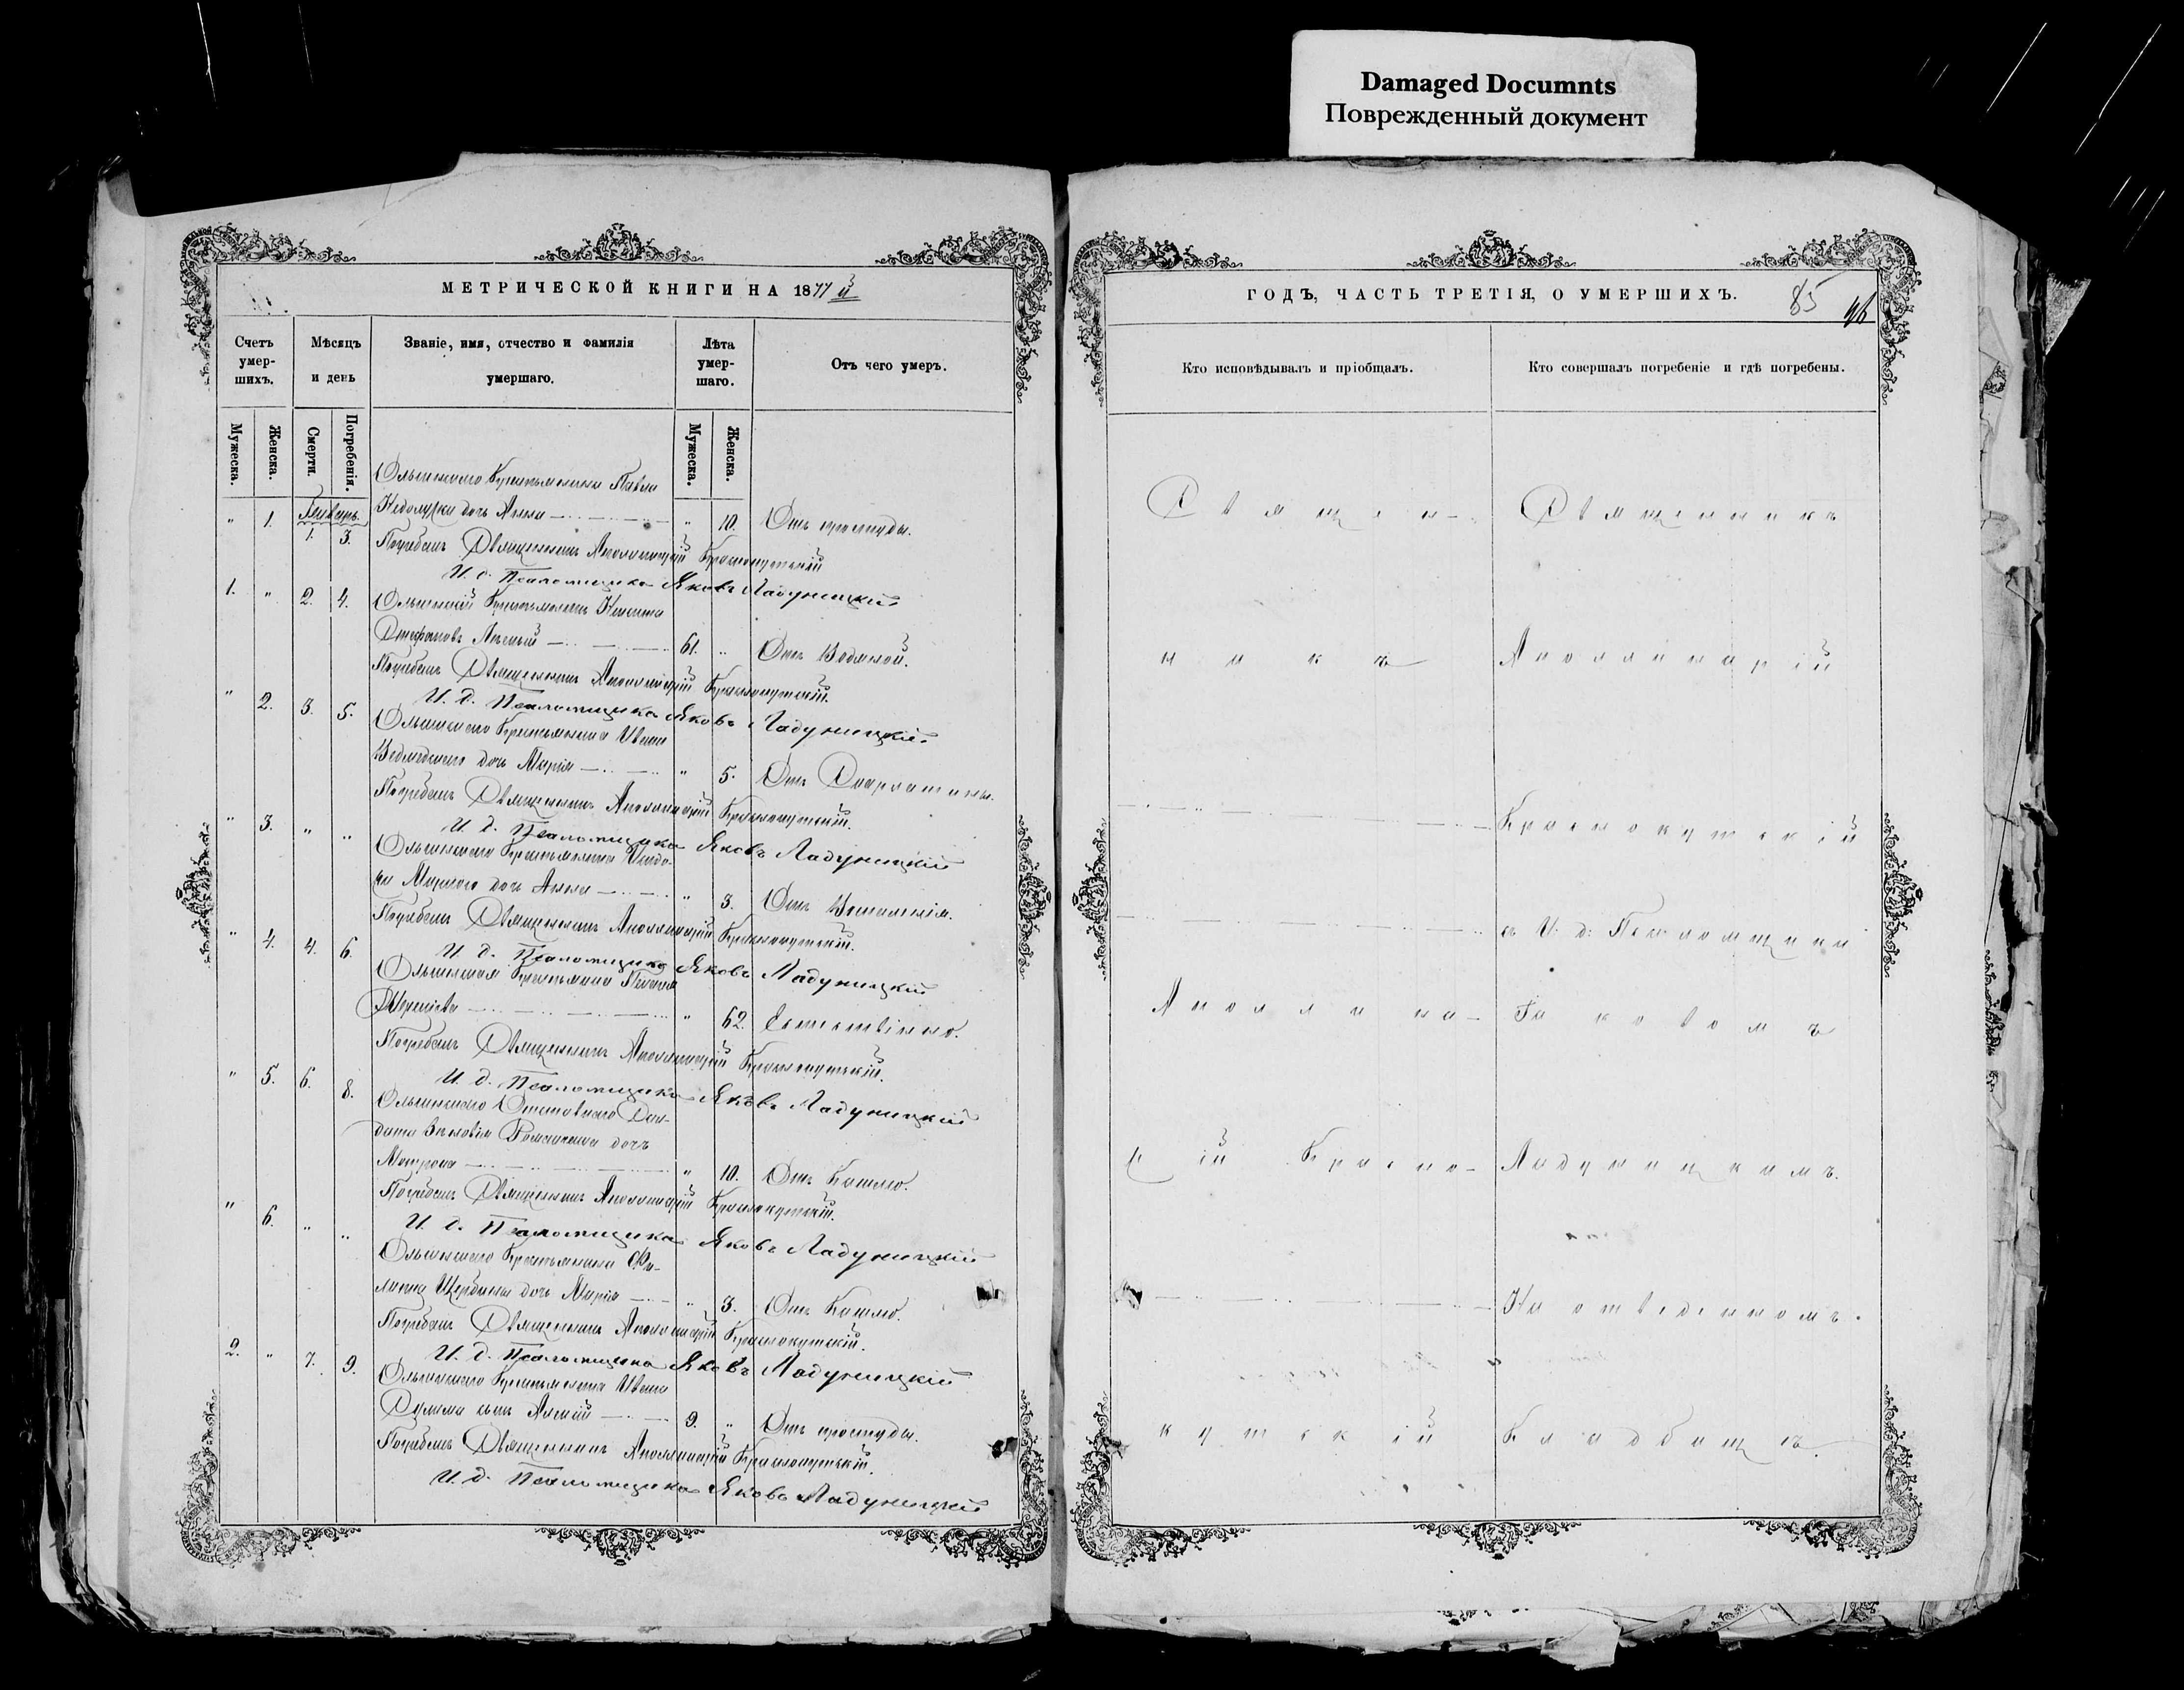 Damaged Documnts
Поврежденный документ
МЕТРИЧЕСКОЙ КНИГИ НА 1877 й
Счетъ умер-шихъ.
Мѣсяцъ и день
Званіе, имя, отчество и фамилія умершаго.
Лѣта умер-шаго.
Отъ чего умеръ.
Мужеска.
Женска.
Смерти.
Погребенія.
Мужеска.
Женска.
Ольшанскаго Крестьянина Павла
" 1. Январь. 1. 3. дочь Анна " 10. Отъ простуды.
Погребалъ Священникъ Аполлинарій Краснокутскій
И. д. Псаломщика Яковъ Ладуницкій
1. " 2. 4. Ольшанскій Крестьянинъ Никита
Стефановъ 61. " Отъ Водяной.
Погребалъ Священникъ Аполлинарій Краснокутскій.
И. д. Псаломщика Яковъ Ладуницкій
" 2. 3. 5. Ольшанскаго Крестьянина Ивана
дочь Марія " 5. Отъ Скарлатины.
Погребалъ Священникъ Аполлинарій Краснокутскій.
И. д. Псаломщика Яковъ Ладуницкій
" 3. " " Ольшанскаго Крестьянина
дочь Анна " 3. Отъ Воспаленія.
Погребалъ Священникъ Аполлинарій Краснокутскій.
И. д. Псаломщика Яковъ Ладуницкій
" 4. 4. 6. Ольшанская Крестьянка
" 62. Естественно.
Погребалъ Священникъ Аполлинарій Краснокутскій.
И. д. Псаломщика Яковъ Ладуницкій
" 5. 6. 8. Ольшанскаго Отставнаго Сол-
дата Романенка дочь
Матрона " 10. Отъ Кашлю.
Погребалъ Священникъ Аполлинарій Краснокутскій.
И. д. Псаломщика Яковъ Ладуницкій
" 6. " " Ольшанскаго Крестьянина Фи-
липпа Щербины дочь Марія " 3. Отъ Кашлю.
Погребалъ Священникъ Аполлинарій Краснокутскій.
И. д. Псаломщика Яковъ Ладуницкій
2. " 7. 9. Ольшанскаго Крестьянина Ивана
сынъ 9. " Отъ простуды.
Погребалъ Священникъ Аполлинарій Краснокутскій.
И. д. Псаломщика Яковъ Ладуницкій
ГОДЪ, ЧАСТЬ ТРЕТІЯ, О УМЕРШИХЪ.
85
Кто исповѣдывалъ и пріобщалъ.
Кто совершалъ погребеніе и гдѣ погребены.
Священ-
никъ
Аполлина-
рій Красно-
кутскій
Священникъ
Аполлинарій
Краснокутскій
съ И. д. Псаломщика
Іаковомъ
Ладуницкимъ.
На отведенномъ
Кладбищѣ.